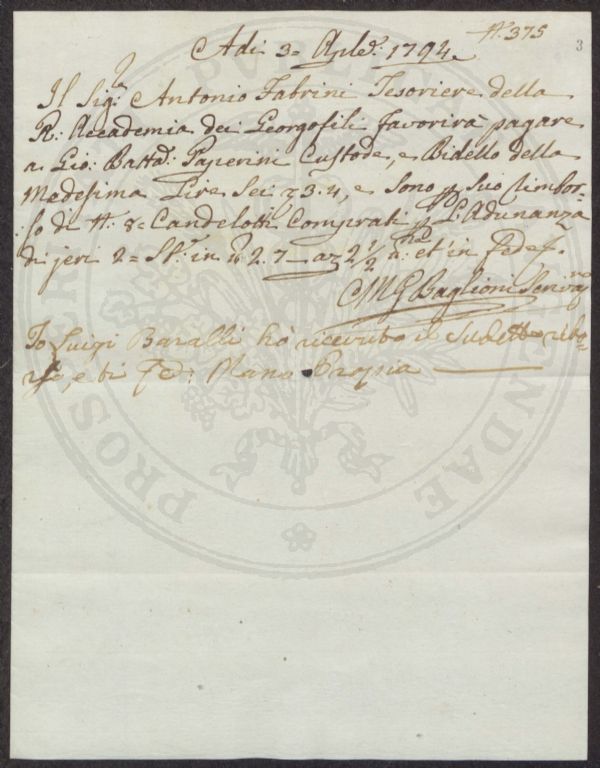 N.° 375
3
Adi 3 = Aple. 1794
Il Sig. Antonio Fabrini Tesoriere della
R: Accademia dei Georgofili favorirà pagare
a Gio: Batta. Paperini Custode, e Bidello della
Medesima Lire Sei 3.4, e Sono p suo rimbor-
so di N.° 8 = Candelotti Comprati p L'Adunanza
di jeri 2 = St. in 2.7 a 2 1/2 et in fede
Baglioni
Io Luigi Baralli hò ricevuto il Sudetto ribo-
rso, e in Fe: Mano Propia
PUBLICAE
PROSPERITATI
AUGENDAE